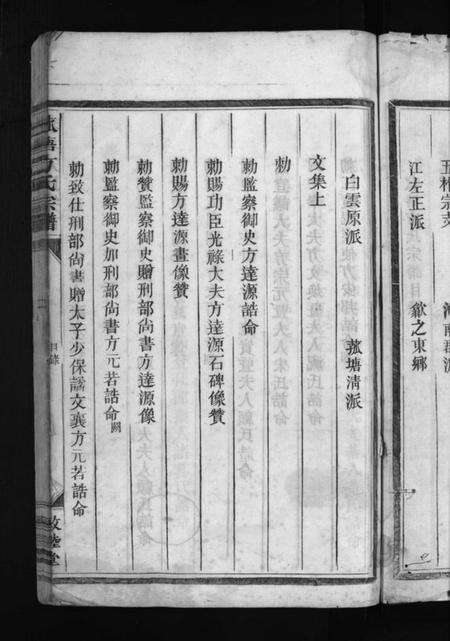 江左正派 歙之東鄉
白雲原派 菰塘清派
文集上
勅
勅監察御史方達源誥命
勅賜功臣光祿大夫方達源石碑像贊
勅賜方達源畫像贊
勅贊監察御史贈刑部尚書方達源像
勅監察御史加刑部尚書方元若誥命闕
勅致仕刑部尚書贈太子少保謚文襄方元若誥命
方氏宗譜
目錄